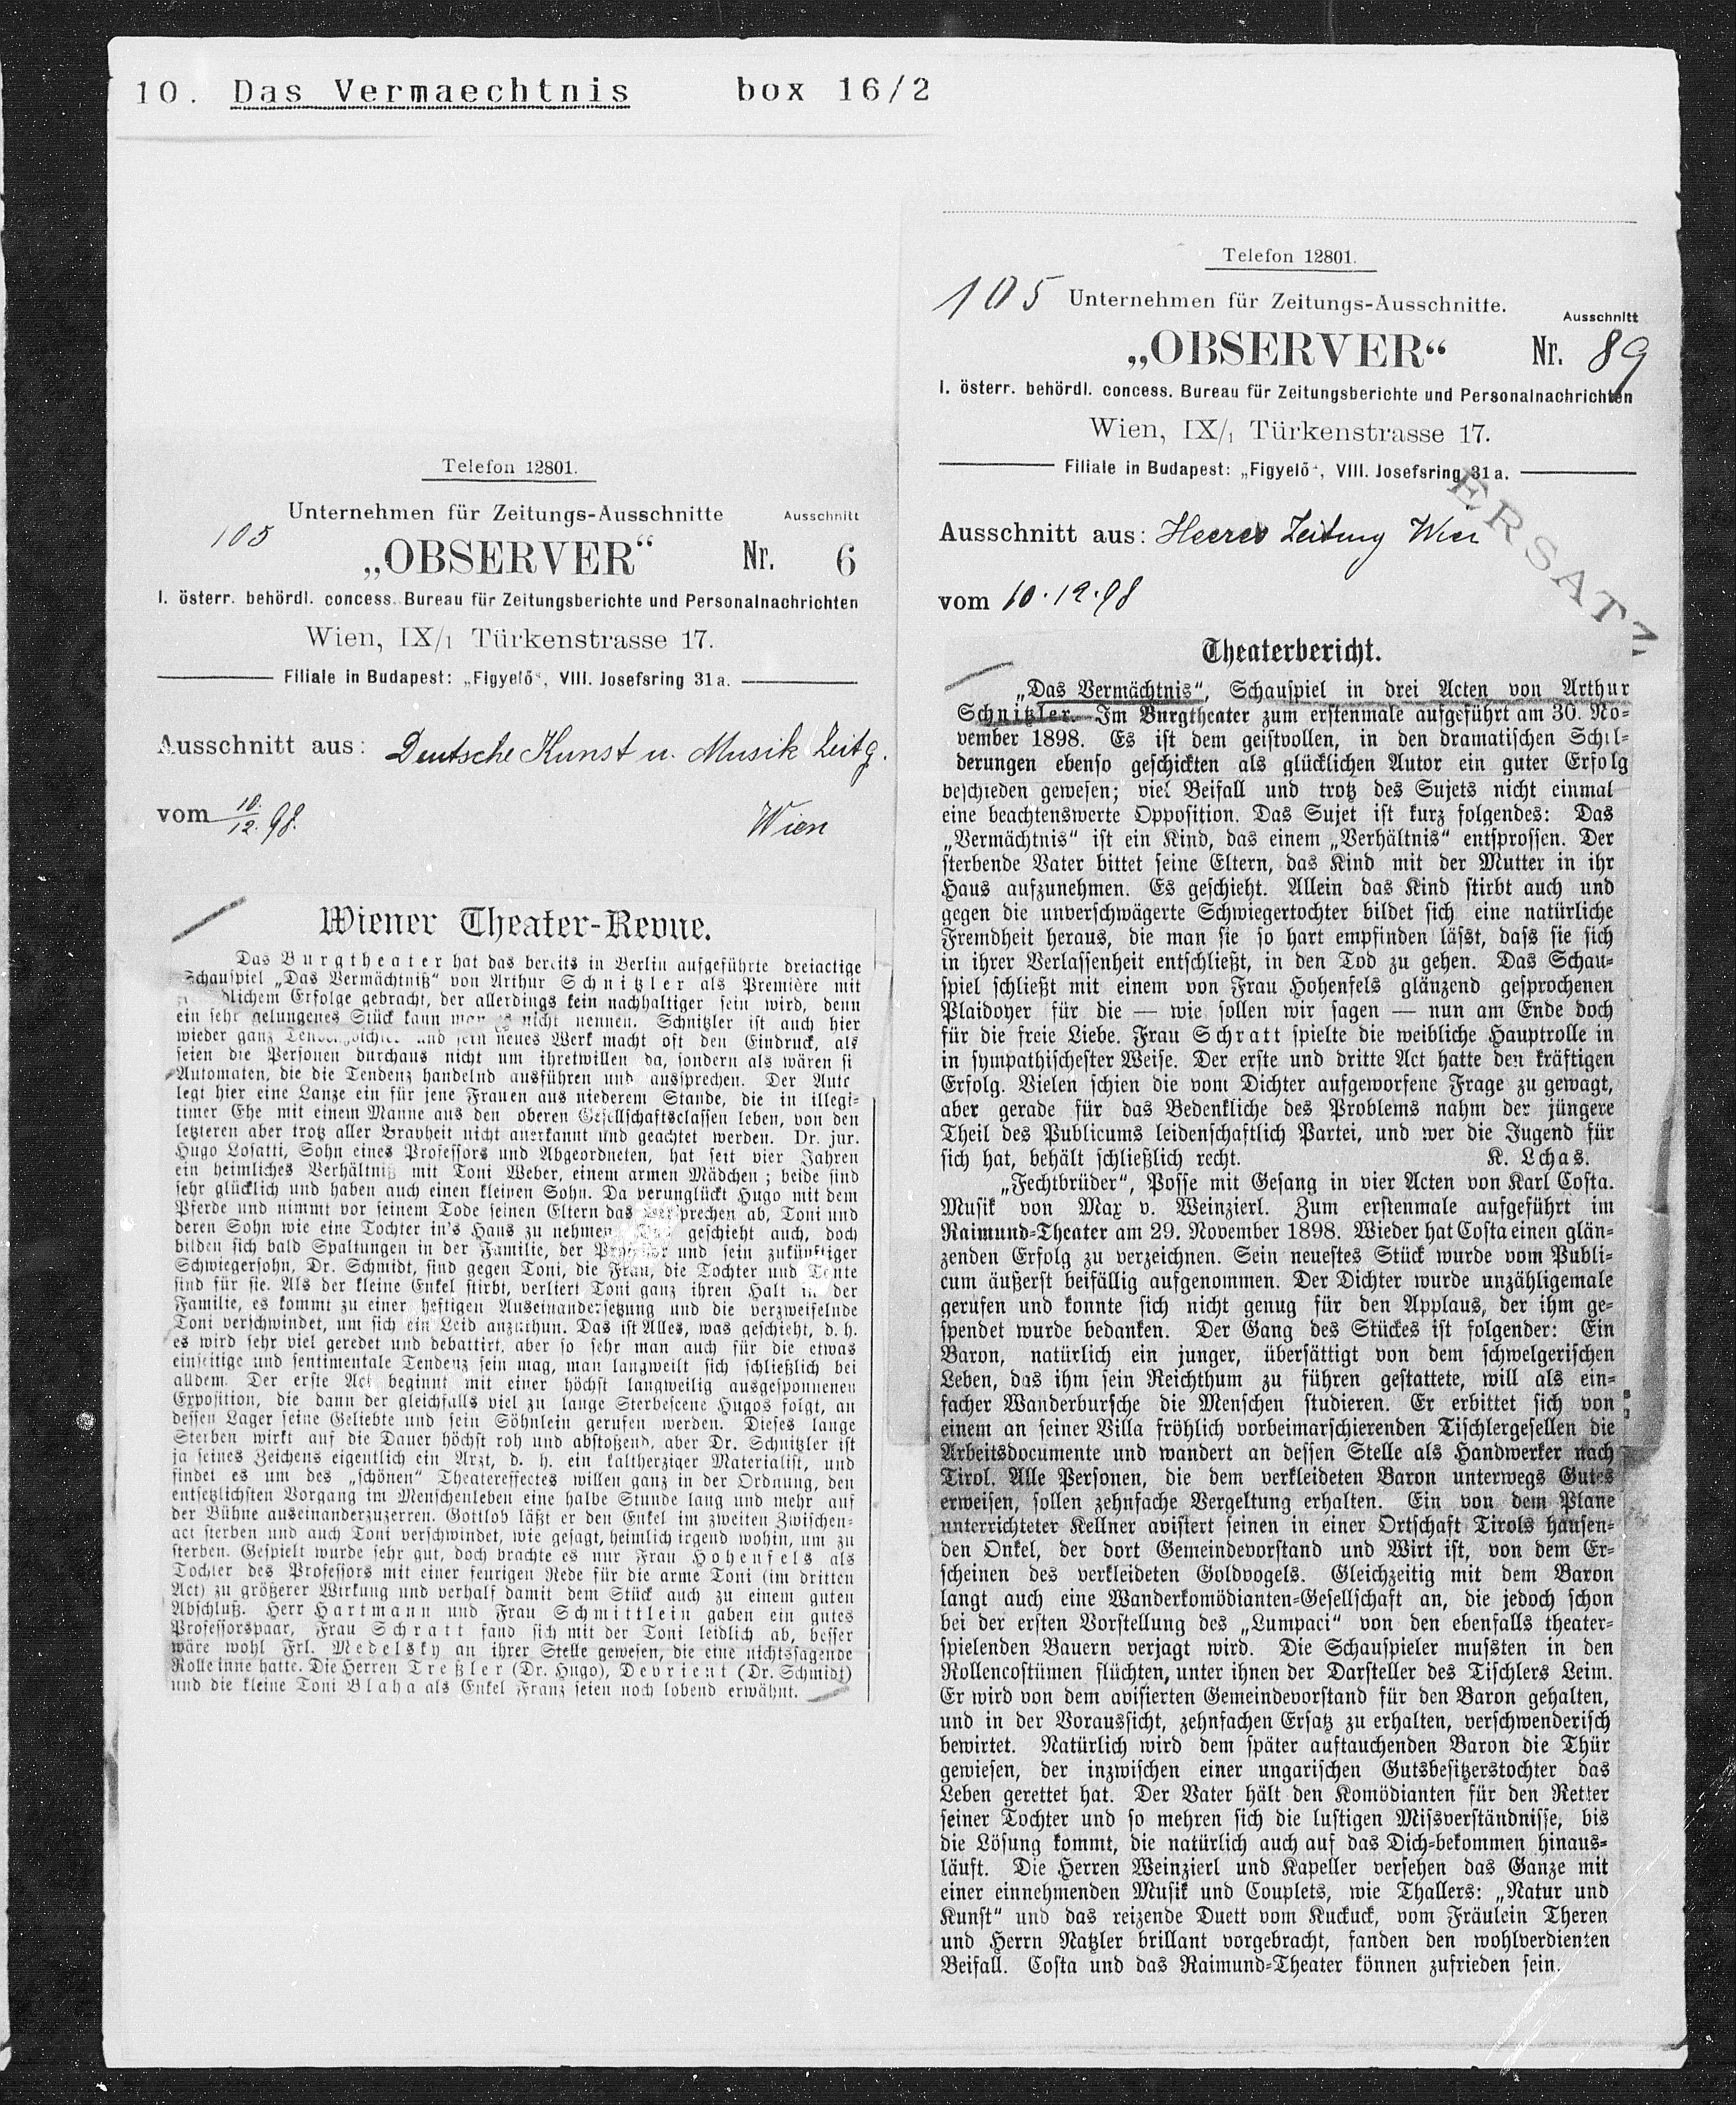 10. Das Vermaechtnis box 16/2
Telefon 12801.
Unternehmen für Zeitungs-Ausschnitte Ausschnitt
105
„OBSERVER“ Nr. 6
I. österr. behördl. concess. Bureau für Zeitungsberichte und Personalnachrichten
Wien, IX/1 Türkenstrasse 17.
Filiale in Budapest: „Figyelő“, VIII. Josefsring 31a.
Ausschnitt aus: Deutsche Kunst u. Musik Zeitg.
vom 10./12. 98. Wien
Wiener Theater-Revue.
Das Burgtheater hat das bereits in Berlin aufgeführte dreiactige
Schauspiel „Das Vermächtniß“ von Arthur Schnitzler als Première mit
dlichem Erfolge gebracht, der allerdings kein nachhaltiger sein wird, denn
ein sehr gelungenes Stück kann man es nicht nennen. Schnitzler ist auch hier
wieder ganz und sein neues Werk macht oft den Eindruck, als
seien die Personen durchaus nicht um ihretwillen da, sondern als wären si
Automaten, die die Tendenz handelnd ausführen und aussprechen. Der Auto
legt hier eine Lanze ein für jene Frauen aus niederem Stande, die in illegi-
timer Ehe mit einem Manne aus den oberen Gesellschaftsclassen leben, von den
letzteren aber trotz aller Bravheit nicht anerkannt und geachtet werden. Dr. jur.
Hugo Losatti, Sohn eines Professors und Abgeordneten, hat seit vier Jahren
ein heimliches Verhältniß mit Toni Weber, einem armen Mädchen; beide sind
sehr glücklich und haben auch einen kleinen Sohn. Da verunglückt Hugo mit dem
Pferde und nimmt vor seinem Tode seinen Eltern das Versprechen ab, Toni und
deren Sohn wie eine Tochter in's Haus zu nehmen. geschieht auch, doch
bilden sich bald Spaltungen in der Familie, der Professor und sein zukünftiger
Schwiegersohn, Dr. Schmidt, sind gegen Toni, die Frau, die Tochter und Tante
sind für sie. Als der kleine Enkel stirbt, verliert Toni ganz ihren Halt in der
Familie, es kommt zu einer heftigen Auseinandersetzung und die verzweifelnde
Toni verschwindet, um sich ein Leid anzuthun. Das ist Alles, was geschieht, d. h.
es wird sehr viel geredet und debattirt, aber so sehr man auch für die etwas
einseitige und sentimentale Tendenz sein mag, man langweilt sich schließlich bei
alldem. Der erste Act beginnt mit einer höchst langweilig ausgesponnenen
Exposition, die dann der gleichfalls viel zu lange Sterbescene Hugos folgt, an
dessen Lager seine Geliebte und sein Söhnlein gerufen werden. Dieses lange
Sterben wirkt auf die Dauer höchst roh und abstoßend, aber Dr. Schnitzler ist
ja seines Zeichens eigentlich ein Arzt, d. h. ein kaltherziger Materialist, und
findet es um des „schönen“ Theatereffectes willen ganz in der Ordnung, den
entsetzlichsten Vorgang im Menschenleben eine halbe Stunde lang und mehr auf
der Bühne auseinanderzuzerren. Gottlob läßt er den Enkel im zweiten Zwischen-
act sterben und auch Toni verschwindet, wie gesagt, heimlich irgend wohin, um zu
sterben. Gespielt wurde sehr gut, doch brachte es nur Frau Hohenfels als
Tochter des Professors mit einer feurigen Rede für die arme Toni (im dritten
Act) zu größerer Wirkung und verhalf damit dem Stück auch zu einem guten
Abschluß. Herr Hartmann und Frau Schmittlein gaben ein gutes
Professorspaar, Frau Schratt fand sich mit der Toni leidlich ab, besser
wäre wohl Frl. Medelsky an ihrer Stelle gewesen, die eine nichtssagende
Rolle inne hatte. Die Herren Treßler (Dr. Hugo), Devrient (Dr. Schmidt)
und die kleine Toni Blaha als Enkel Franz seien noch lobend erwähnt.
Telefon 12801.
105 Unternehmen für Zeitungs-Ausschnitte. Ausschnitt
„OBSERVER“ Nr. 89
I. österr. behördl. concess. Bureau für Zeitungsberichte und Personalnachrichten
Wien, IX/1 Türkenstrasse 17.
Filiale in Budapest: „Figyelő“, VIII. Josefsring 31a.
ERSATZ
Ausschnitt aus: Heeres Zeitung Wien
vom 10.12.98
Theaterbericht.
„Das Vermächtnis“, Schauspiel in drei Acten von Arthur
Schnitzler. Im Burgtheater zum erstenmale aufgeführt am 30. No-
vember 1898. Es ist dem geistvollen, in den dramatischen Schil-
derungen ebenso geschickten als glücklichen Autor ein guter Erfolg
beschieden gewesen; viel Beifall und trotz des Sujets nicht einmal
eine beachtenswerte Opposition. Das Sujet ist kurz folgendes: Das
„Vermächtnis“ ist ein Kind, das einem „Verhältnis“ entsprossen. Der
sterbende Vater bittet seine Eltern, das Kind mit der Mutter in ihr
Haus aufzunehmen. Es geschieht. Allein das Kind stirbt auch und
gegen die unverschwägerte Schwiegertochter bildet sich eine natürliche
Fremdheit heraus, die man sie so hart empfinden lässt, dass sie sich
in ihrer Verlassenheit entschließt, in den Tod zu gehen. Das Schau-
spiel schließt mit einem von Frau Hohenfels glänzend gesprochenen
Plaidoyer für die — wie sollen wir sagen — nun am Ende doch
für die freie Liebe. Frau Schratt spielte die weibliche Hauptrolle in
in sympathischester Weise. Der erste und dritte Act hatte den kräftigen
Erfolg. Vielen schien die vom Dichter aufgeworfene Frage zu gewagt,
aber gerade für das Bedenkliche des Problems nahm der jüngere
Theil des Publicums leidenschaftlich Partei, und wer die Jugend für
sich hat, behält schließlich recht. K. Lchas.
„Fechtbrüder“, Posse mit Gesang in vier Acten von Karl Costa.
Musik von Max v. Weinzierl. Zum erstenmale aufgeführt im
Raimund-Theater am 29. November 1898. Wieder hat Costa einen glän-
zenden Erfolg zu verzeichnen. Sein neuestes Stück wurde vom Publi-
cum äußerst beifällig aufgenommen. Der Dichter wurde unzähligemale
gerufen und konnte sich nicht genug für den Applaus, der ihm ge-
spendet wurde bedanken. Der Gang des Stückes ist folgender: Ein
Baron, natürlich ein junger, übersättigt von dem schwelgerischen
Leben, das ihm sein Reichthum zu führen gestattete, will als ein-
facher Wanderbursche die Menschen studieren. Er erbittet sich von
einem an seiner Villa fröhlich vorbeimarschierenden Tischlergesellen die
Arbeitsdocumente und wandert an dessen Stelle als Handwerker nach
Tirol. Alle Personen, die dem verkleideten Baron unterwegs Gutes
erweisen, sollen zehnfache Vergeltung erhalten. Ein von dem Plane
unterrichteter Kellner avisiert seinen in einer Ortschaft Tirols hausen-
den Onkel, der dort Gemeindevorstand und Wirt ist, von dem Er-
scheinen des verkleideten Goldvogels. Gleichzeitig mit dem Baron
langt auch eine Wanderkomödianten-Gesellschaft an, die jedoch schon
bei der ersten Vorstellung des „Lumpaci“ von den ebenfalls theater-
spielenden Bauern verjagt wird. Die Schauspieler mussten in den
Rollencostümen flüchten, unter ihnen der Darsteller des Tischlers Leim.
Er wird von dem avisierten Gemeindevorstand für den Baron gehalten,
und in der Voraussicht, zehnfachen Ersatz zu erhalten, verschwenderisch
bewirtet. Natürlich wird dem später auftauchenden Baron die Thür
gewiesen, der inzwischen einer ungarischen Gutsbesitzerstochter das
Leben gerettet hat. Der Vater hält den Komödianten für den Retter
seiner Tochter und so mehren sich die lustigen Missverständnisse, bis
die Lösung kommt, die natürlich auch auf das Dich-bekommen hinaus-
läuft. Die Herren Weinzierl und Kapeller versehen das Ganze mit
einer einnehmenden Musik und Couplets, wie Thallers: „Natur und
Kunst“ und das reizende Duett vom Kuckuck, vom Fräulein Theren
und Herrn Natzler brillant vorgebracht, fanden den wohlverdienten
Beifall. Costa und das Raimund-Theater können zufrieden sein.